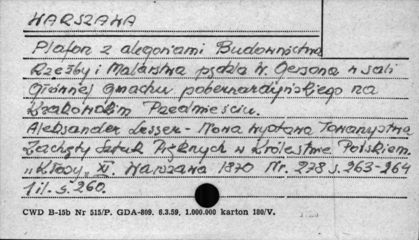 WARSZAWA
Plafon z alegoriami Budownictwa
Rzeźby i Malarstwa pędzla W. Gersona w sali
głównej gmachu pobernardyńskiego na
Krakowskim Przedmieściu.
Aleksander Lesser - Nowa wystawa Towarzystwa
Zachęty Sztuk Pięknych w Królestwie Polskiem.
"Kłosy" XI. Warszawa 1870 Nr. 278 s. 263-264
1 il. s. 260.
CWD B-15b Nr 515/P. GDA-809. 6.3.59. 1.000.000 karton 180/V.